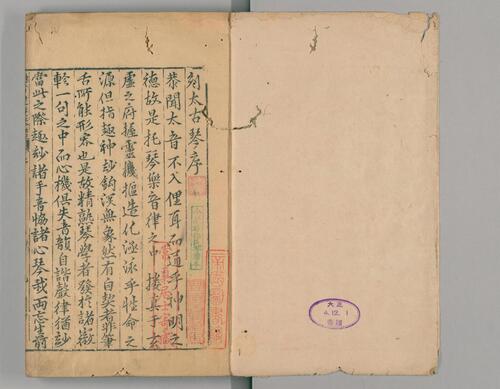 刻太古琴序
恭聞太音不入俚耳而通乎神明之
德故是托琴樂音律之中接真于玄
虛之府握靈機樞造化涵泳乎性命之
源但指趣神玅鈎深無象然有自契者非筆
舌所能形容也是故精熟琴學者發於諸徽
軫一句之中而心機俱失音韻自諧聲律猶玅
當此之際趣玅諸手音恊諸心琴我兩忘生前
大正
4.12.1